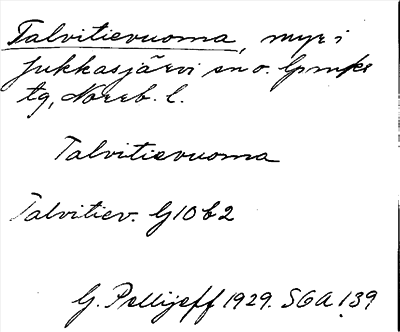 Talvitievuoma, myr i
Jukkasjärvi sn o. lpmks
tg, Norrb. l.
Talvitievuoma
Talvitiev. G10b2
G. Pellijeff 1929. SGA 139